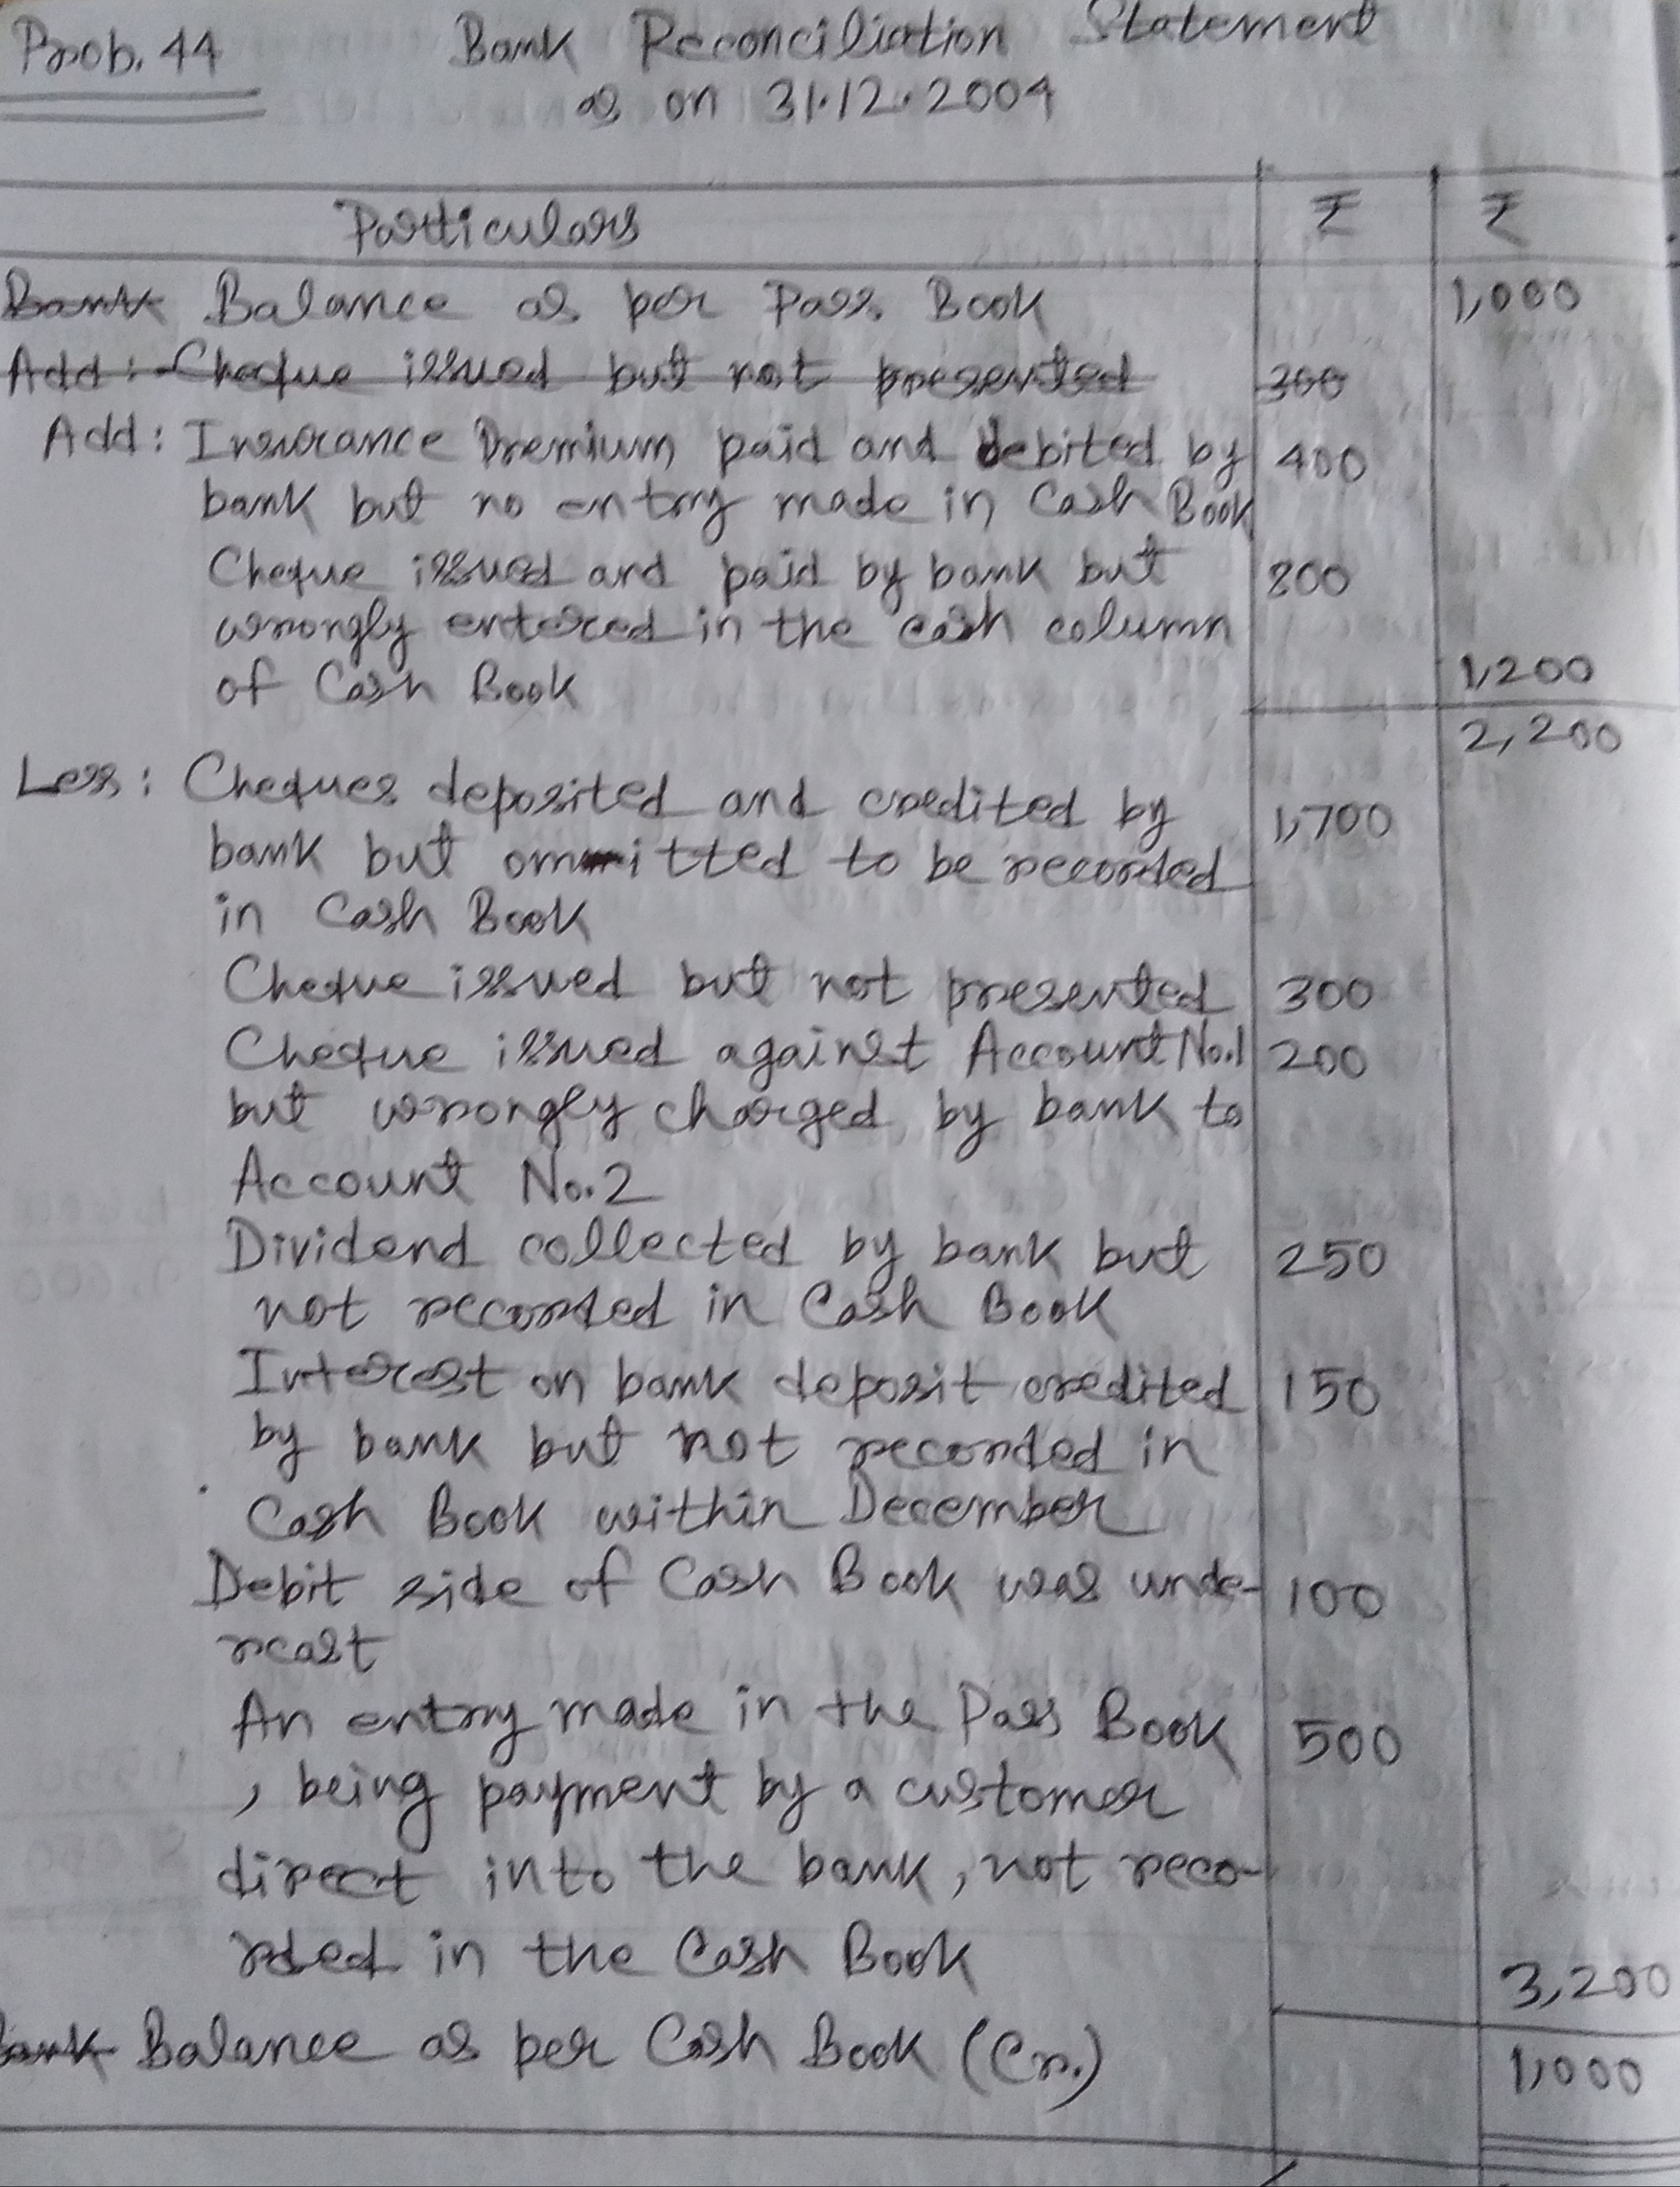 Prob. 44 Bank Reconciliation Statement
as on 31.12.2004
Particulars ₹ ₹
Bank Balance as per Pass Book 1,000
Add: Cheque issued but not presented 300
Add: Insurance Premium paid and debited by 400
bank but no entry made in Cash Book
Cheque issued and paid by bank but 800
wrongly entered in the cash column
of Cash Book 1,200
2,200
Less: Cheques deposited and credited by 1,700
bank but ommitted to be recorded
in Cash Book
Cheque issued but not presented 300
Cheque issued against Account No.1 200
but wrongly charged by bank to
Account No.2
Dividend collected by bank but 250
not recorded in Cash Book
Interest on bank deposit credited 150
by bank but not recorded in
Cash Book within December
Debit side of Cash Book was unde- 100
rcast
An entry made in the Pass Book 500
, being payment by a customer
direct into the bank, not reco-
rded in the Cash Book 3,200
Bank Balance as per Cash Book (Cr.) 1,000